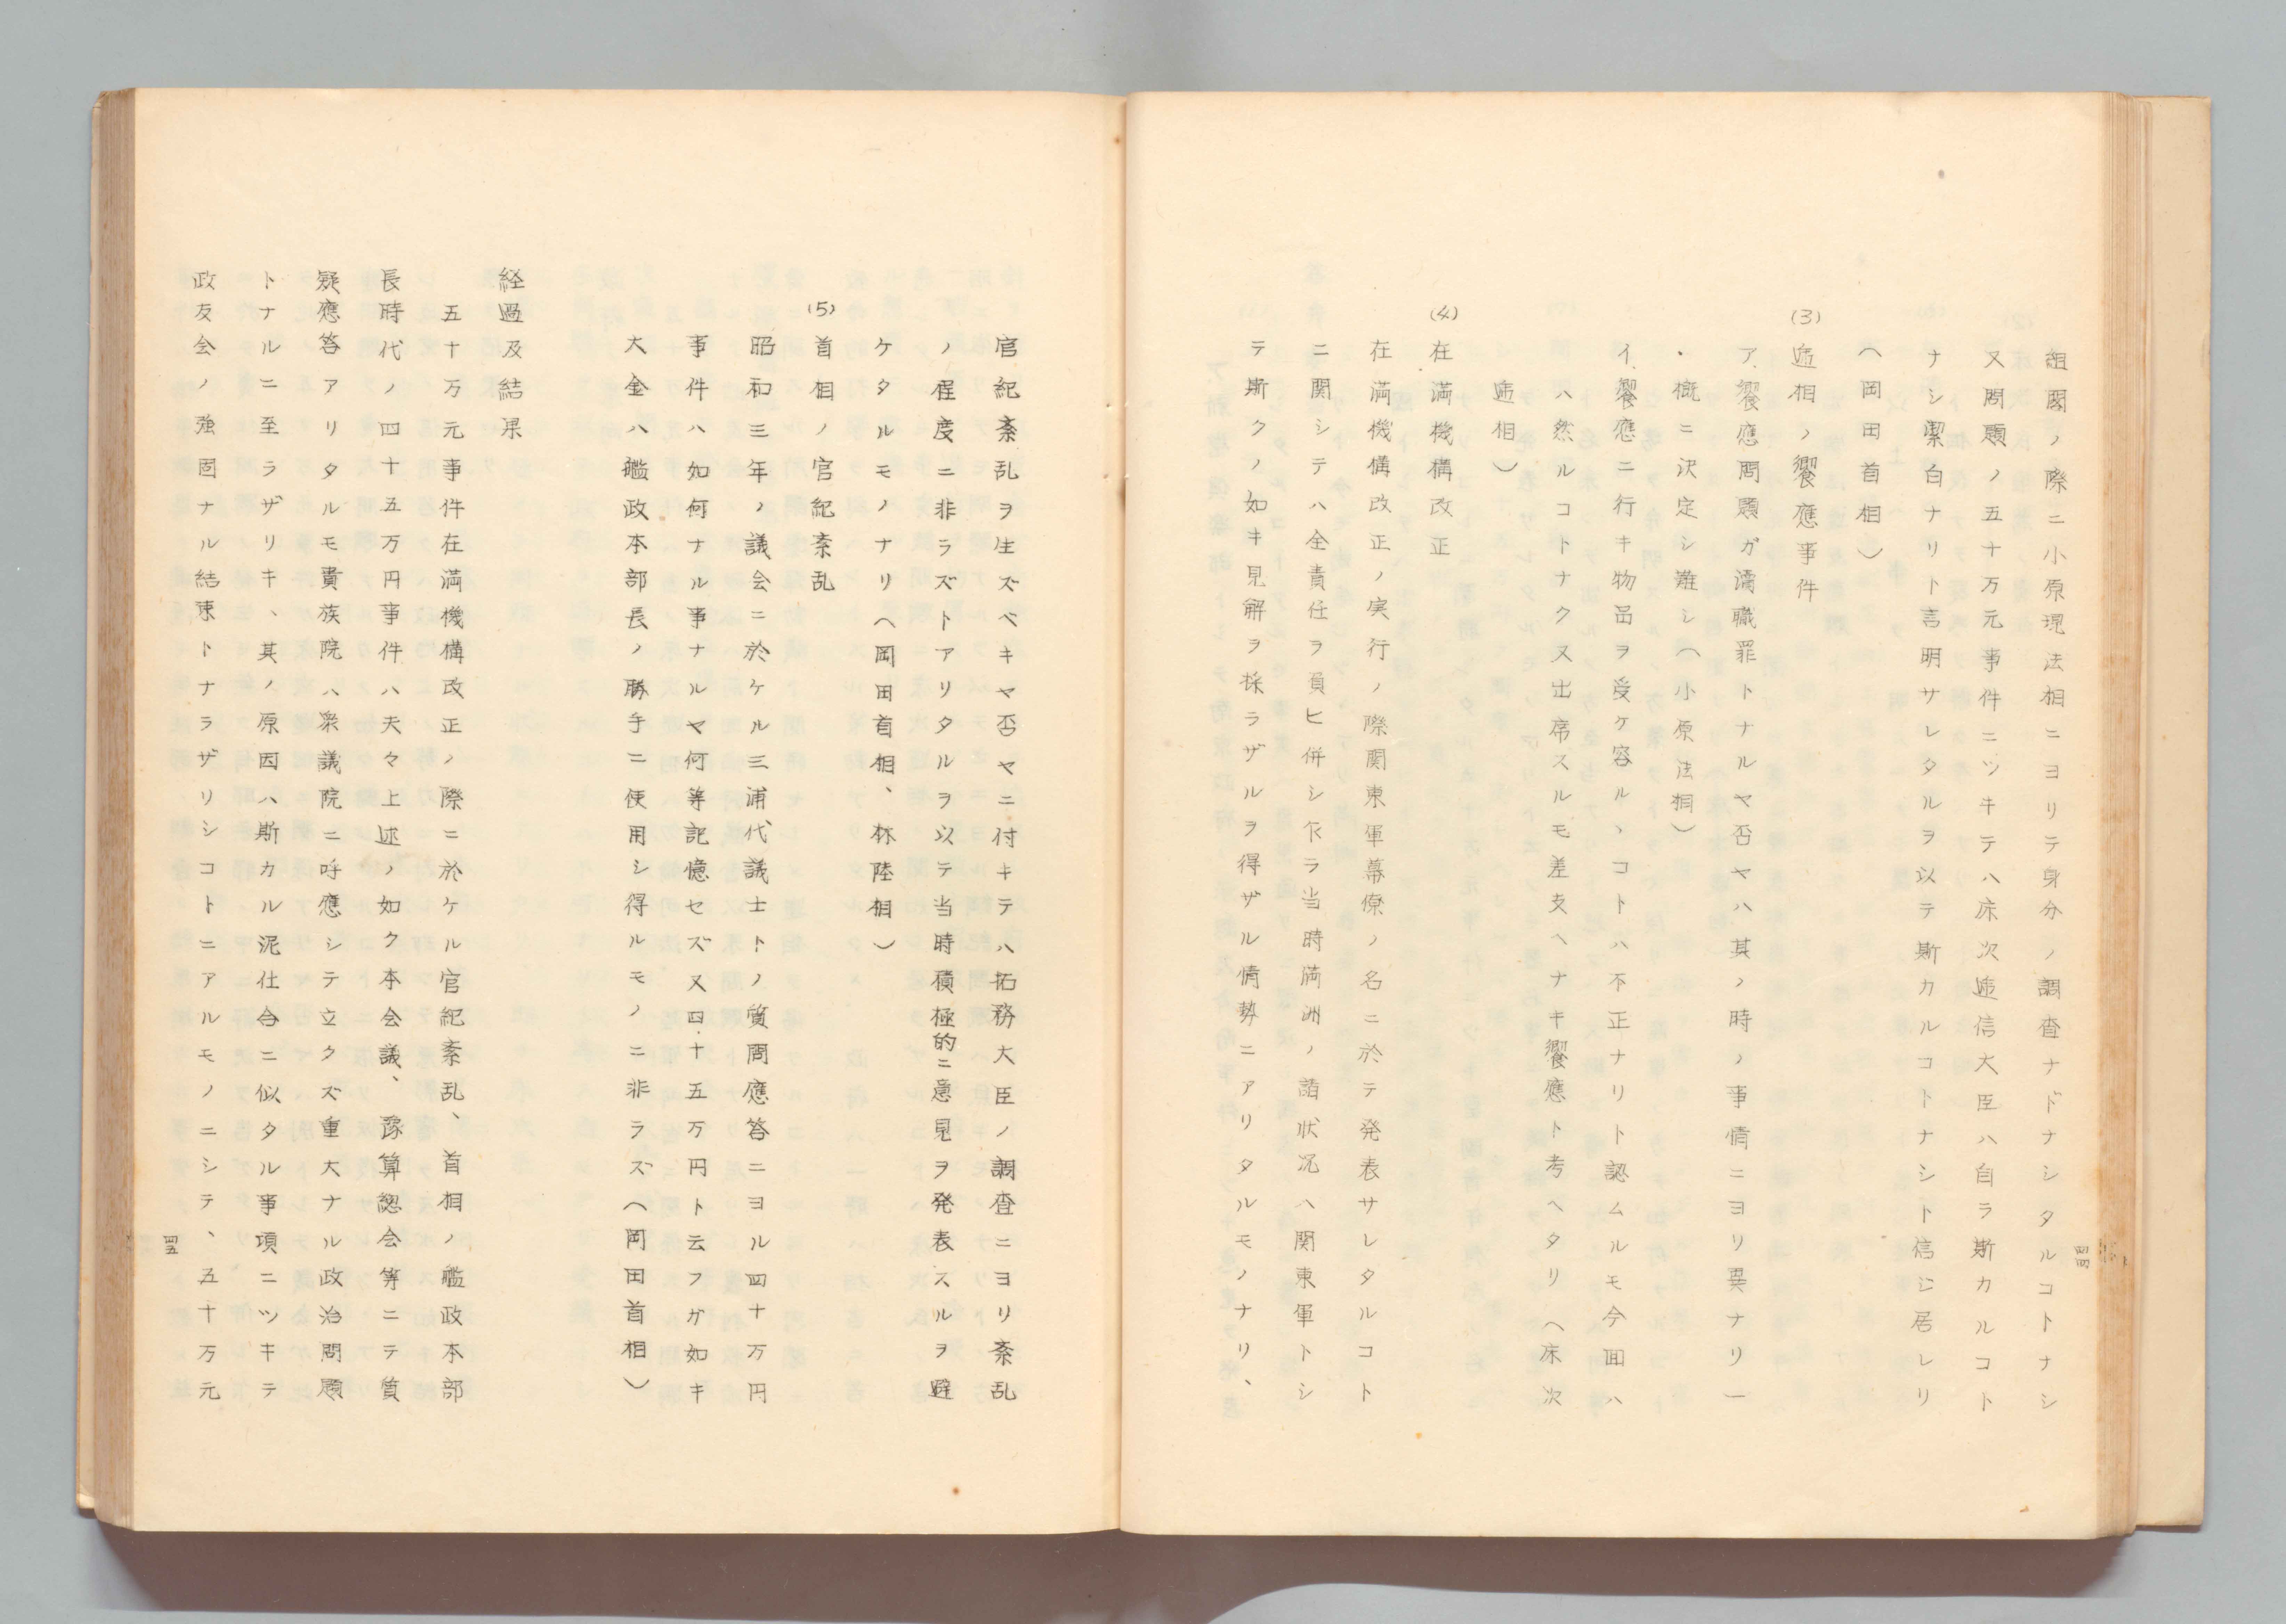 組閣ノ際ニ小原現法相ニヨリテ身分ノ調査ナドナシタルコトナシ
又問題ノ五十万元事件ニツキテハ床次逓信大臣ハ自ラ斯カルコト
ナシ潔白ナリト言明サレタルヲ以テ斯カルコトナシト信ジ居レリ
(岡田首相)
(3) 逓相ノ饗應事件
ア、饗應問題ガ瀆職罪トナルヤ否ヤハ其ノ時ノ事情ニヨリ異ナリ一
概ニ決定シ難シ(小原法相)
イ、饗應ニ行キ物品ヲ受ケ容ルヽコトハ不正ナリト認ムルモ今回ハ
ハ然ルコトナク又出席スルモ差支ヘナキ饗應ト考ヘタリ(床次
逓相)
(4) 在満機構改正
在満機構改正ノ実行ノ際関東軍幕僚ノ名ニ於テ発表サレタルコト
ニ関シテハ全責任ヲ負ヒ併シ乍ラ当時満洲ノ諸状況ハ関東軍トシ
テ斯クノ如キ見解ヲ採ラザルヲ得ザル情勢ニアリタルモノナリ、
四四
官紀紊乱ヲ生ズベキヤ否ヤニ付キテハ拓務大臣ノ調査ニヨリ紊乱
ノ程度ニ非ラズトアリタルヲ以テ当時積極的ニ意見ヲ発表スルヲ避
ケタルモノナリ(岡田首相、林陸相)
(5) 首相ノ官紀紊乱
昭和三年ノ議会ニ於ケル三浦代議士トノ質問應答ニヨル四十万円
事件ハ如何ナル事ナルヤ何等記憶セズ又四十五万円ト云フガ如キ
大金ハ艦政本部長ノ勝手ニ使用シ得ルモノニ非ラズ(岡田首相)
経過及結果
五十万元事件在満機構改正ノ際ニ於ケル官紀紊乱、首相ノ艦政本部
長時代ノ四十五万円事件ハ夫々上述ノ如ク本会議、豫算総会等ニテ質
疑應答アリタルモ貴族院ハ衆議院ニ呼應シテ立クズ重大ナル政治問題
トナルニ至ラザリキ、其ノ原因ハ斯カル泥仕合ニ似タル事項ニツキテ
政友会ノ強固ナル結束トナラザリシコトニアルモノニシテ、五十万元
四五